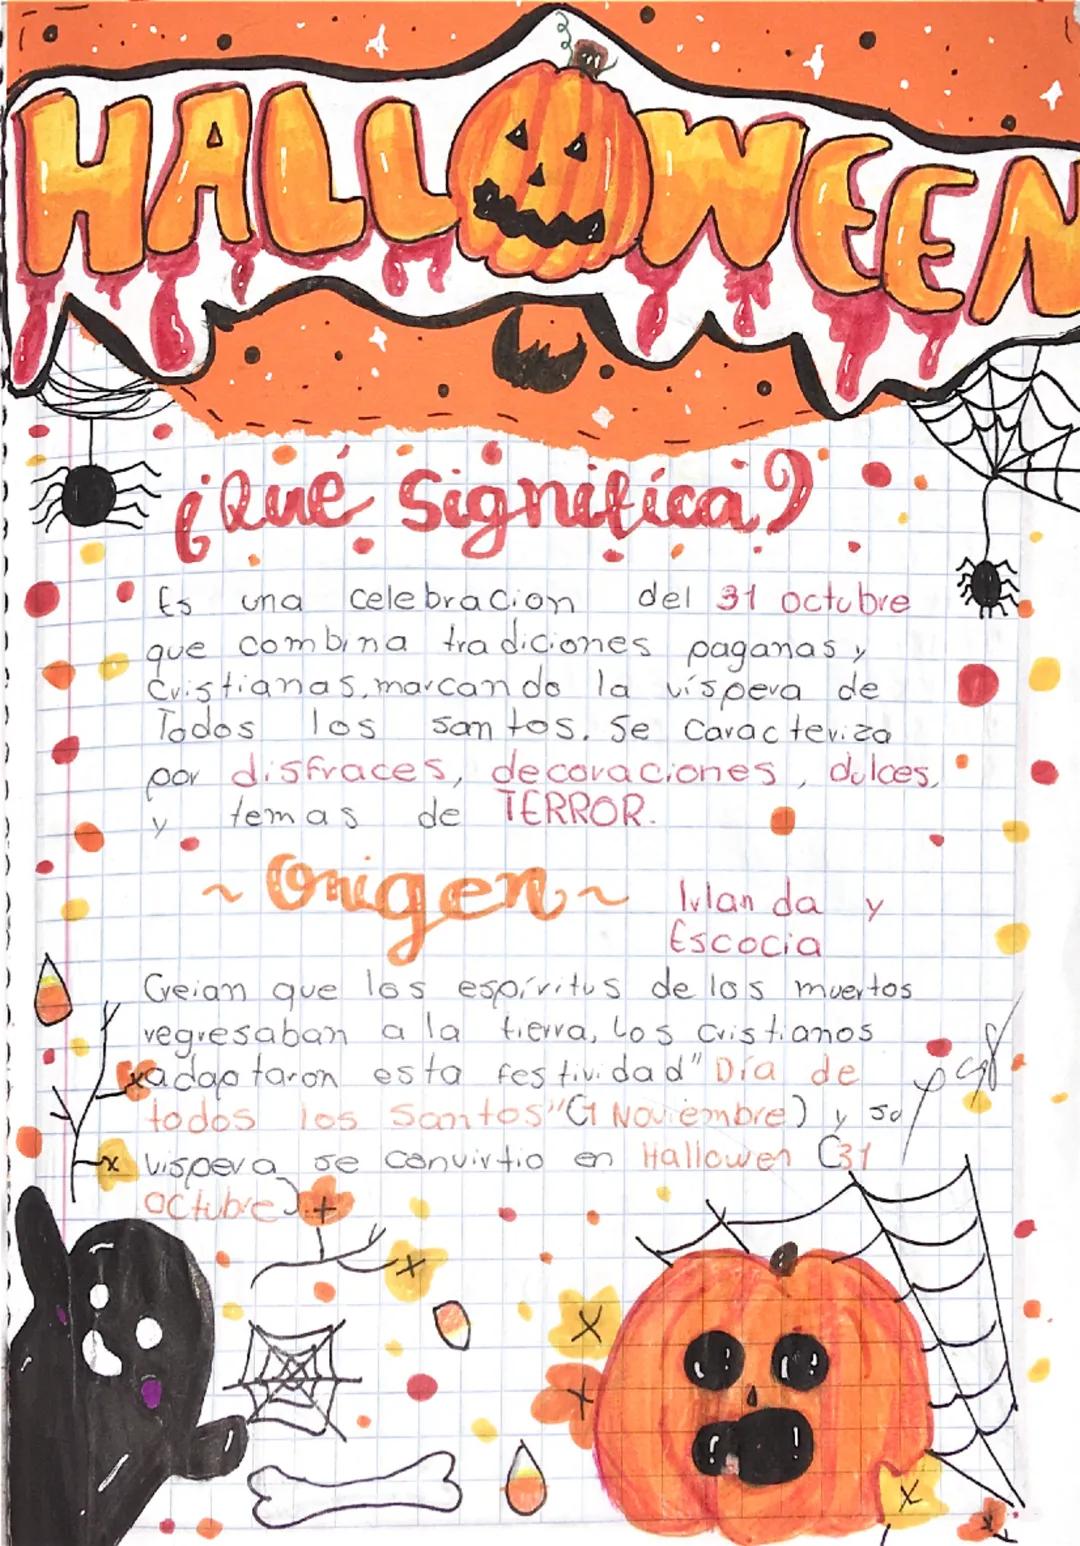 HALLOWEEN
¿Qué significa?
Es una celebracion del 31 octubre
que combina tradiciones paganas y
cristianas, marcando la víspera de
Todos los santos. Se caracteriza
por disfraces, decoraciones, dulces,
y temas de TERROR.
~ Origen ~
Irlanda y
Escocia
Creian que los espíritus de los muertos
regresaban a la tierra, Los cristianos
adaptaron esta festividad "Día de
todos los Santos" (1 Noviembre) y su
vispera se convirtio en Hallowen (31
octubre)